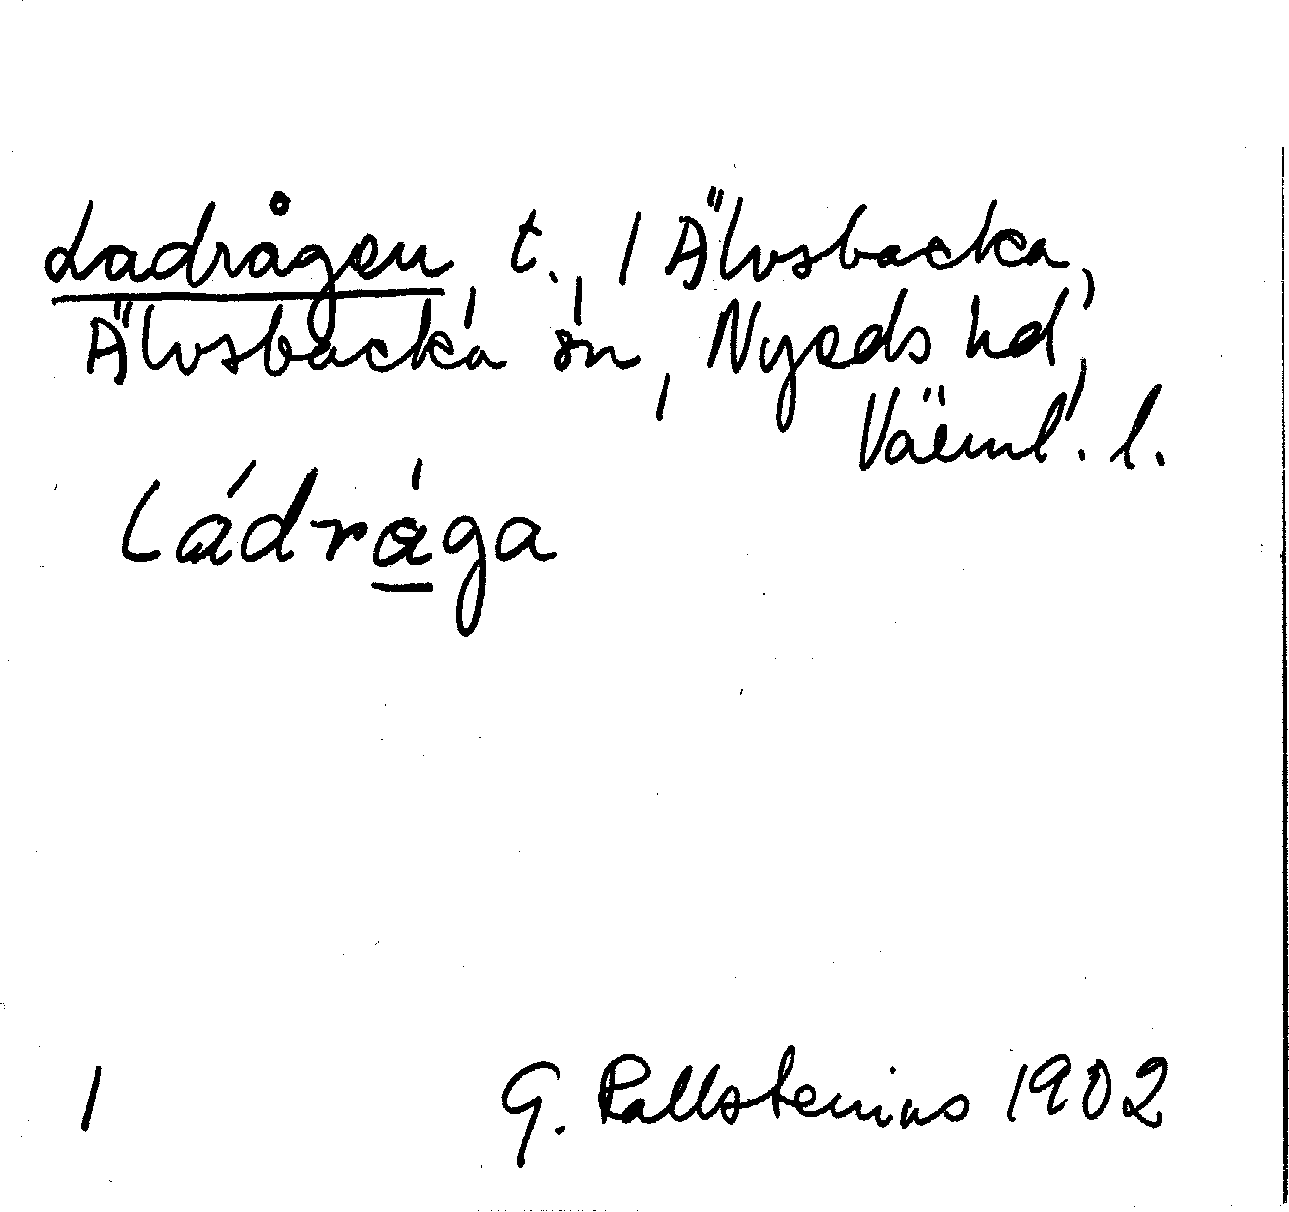 Ladrågen, t., 1 Älvsbacka,
Älvsbacka sn, Nyeds hd,
Värml. l.
Ládrága
1 G. Kallstenius 1902